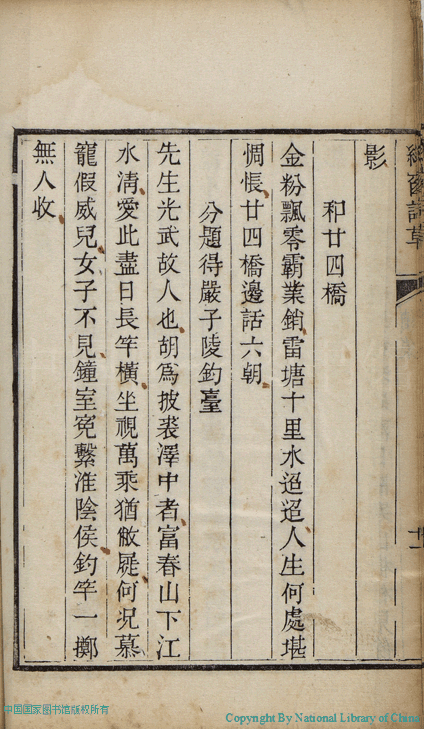 詩草
十一
影
和廿四橋
金粉飄零霸業銷雷塘十里水迢迢人生何處堪
惆悵廿四橋邊話六朝
分題得嚴子陵釣臺
先生光武故人也胡爲披裘澤中者富春山下江
水清愛此盡日長竿橫坐視萬乘猶敝屣何況慕
寵假威兒女子不見鐘室寃繫准陰侯釣竿一擲
無人收
中国国家图书馆版权所有
Copyright By National Library of China